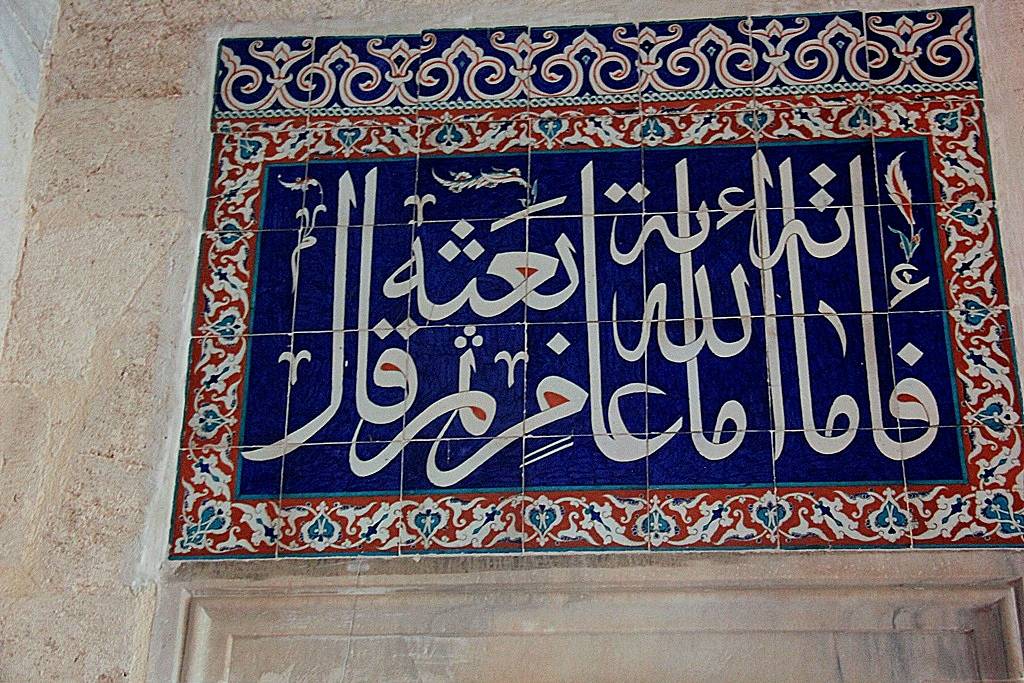 فأماته الله مائة عام ثم بعثه قال